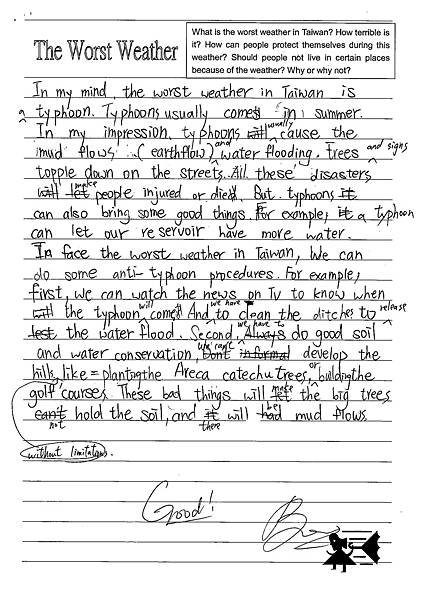 The Worst Weather
What is the worst weather in Taiwan? How terrible is
it? How can people protect themselves during this
weather? Should people not live in certain places
because of the weather? Why or why not?
In my mind, the worst weather in Taiwan is
a typhoon. Typhoons usually comes in summer.
In my impression, typhoons will usually cause the
mud flows (earthflow) and water flooding. Trees and signs
topple down on the streets. All these disasters
will let make people injured or died. But typhoons It
can also bring some good things. For example, it a typhoon
can let our reservoir have more water.
In face the worst weather in Taiwan, we can
do some anti-typhoon procedures. For example,
first, we can watch the news on TV to know when
will the typhoon will comes. And we have to clean the ditches to release
let the water flood. Second, Always we have to do good soil
and water conservation, Don't We can't develop the
hills, like = planting the Areca catechu trees, or building the
golf courses. These bad things will let make the big trees
can't not hold the soil, and it there will had be mud flows.
without limitations.
Good!